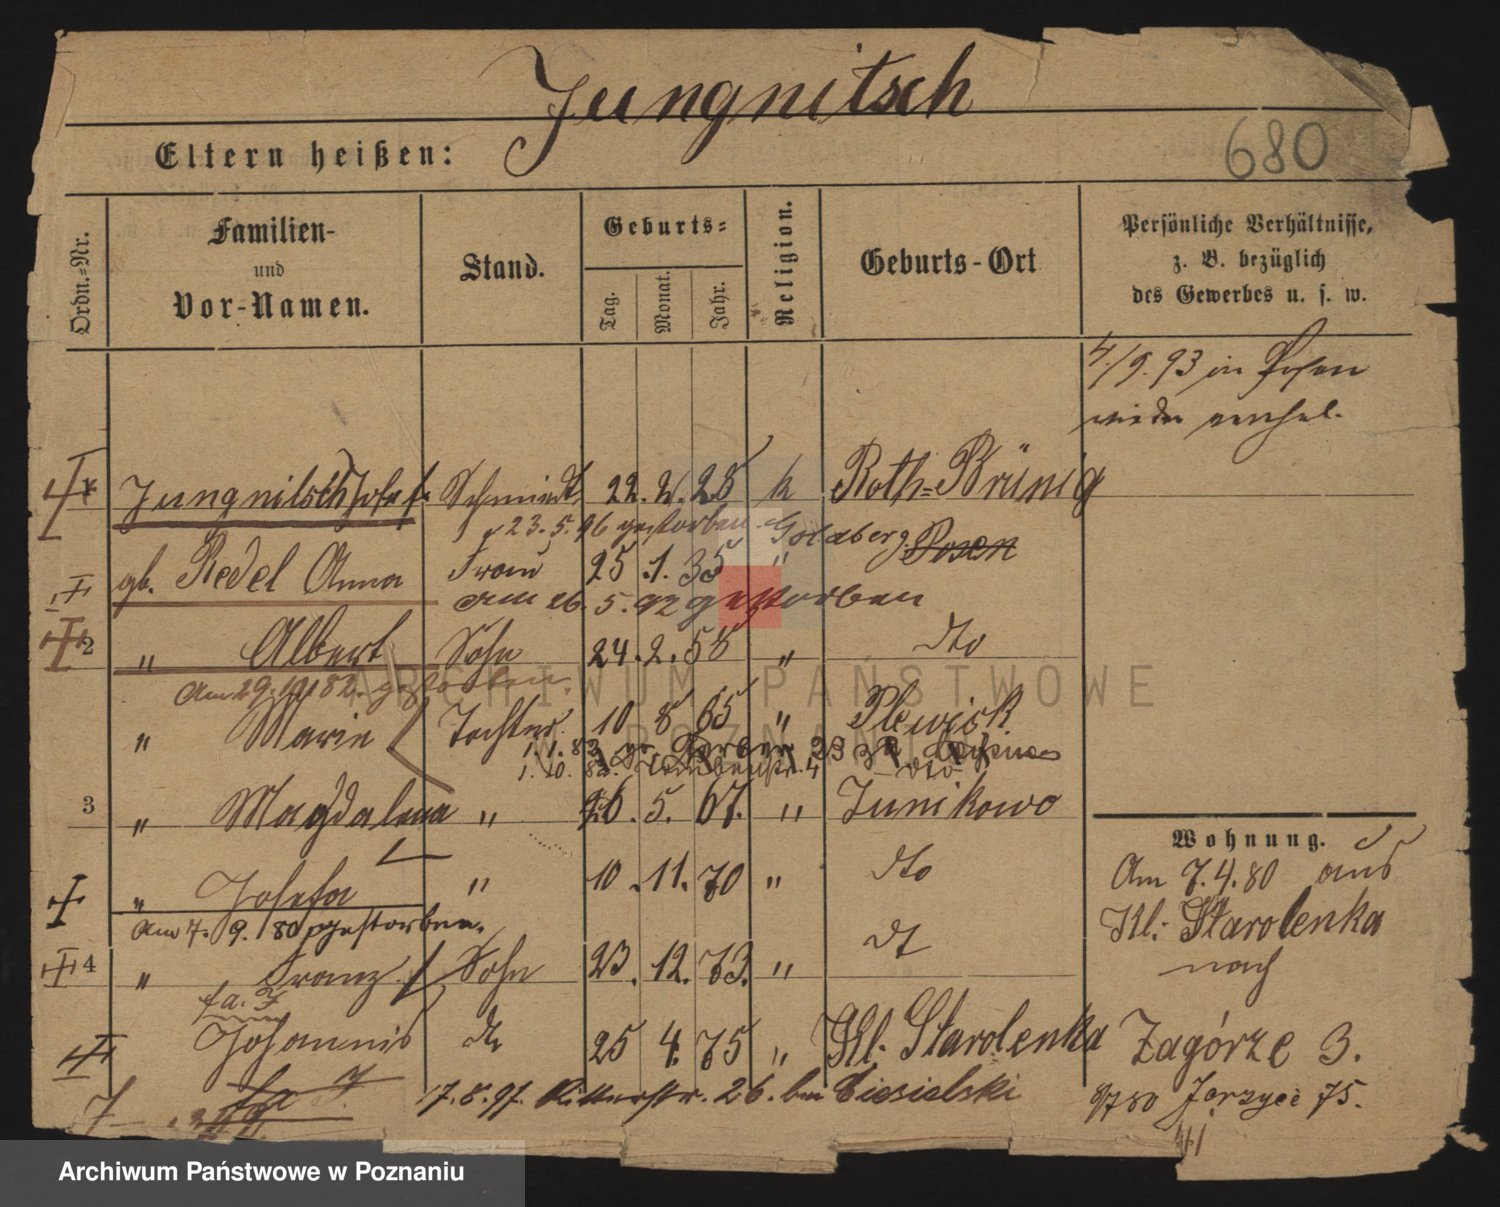 Jungnitsch
680
Eltern heißen:
Ordn.-Nr.
Familien-
und
Vor-Namen.
Stand.
Geburts-
Tag.
Monat.
Jahr.
Religion.
Geburts-Ort
Persönliche Verhältnisse,
z. B. bezüglich
des Gewerbes u. s. w.
4/9.93 in Posen
wieder
Jungnitsch Josef Schmiedt 22. 2. 25 k Roth-Brünig
23.5.96 gestorben Goldberg Posen
gb. Redel Anna Frau 25 .1. 35 "
Am 26. 5. 92 gestorben
2 " Albert Sohn 24. 2. 58 " dto
Am 29. 82. gestorben.
" Marie Tochter 10 8 65 " Plewisk
1.1.83 gr. Gerber 23
1. 10. 4 dto
3 " Magdalena " 26. 5. 67. " Junikowo
" Josefa " 10. 11. 70 " dto
Am 7. 9. 80 gestorben.
4 " Franz Sohn 23. 12. 73. " dt
fa. J
Johannis dto 25 4. 75 " Kl. Starolenka
fa J.
7.8.97. Ritterstr. 26. bei Ciesielski
Wohnung.
Am 7.4.80 aus
Kl: Starolenka
nach
Zagórze 3.
9/7 80 Jerzyce 75.
ARCHIWUM PAŃSTWOWE
W POZNANIU
Archiwum Państwowe w Poznaniu